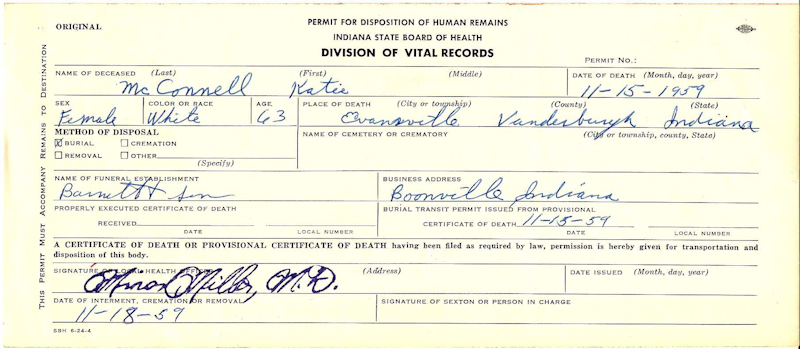 ORIGINAL
PERMIT FOR DISPOSITION OF HUMAN REMAINS
INDIANA STATE BOARD OF HEALTH
DIVISION OF VITAL RECORDS
PERMIT NO.:
THIS PERMIT MUST ACCOMPANY REMAINS TO DESTINATION
NAME OF DECEASED (Last) (First) (Middle) DATE OF DEATH (Month, day, year)
McConnell Katie 11-15-1959
SEX COLOR OR RACE AGE PLACE OF DEATH (City or township) (County) (State)
Female White 63 Evansville Vanderburgh Indiana
METHOD OF DISPOSAL NAME OF CEMETERY OR CREMATORY (City or township, county, State)
☒ BURIAL ☐ CREMATION
☐ REMOVAL ☐ OTHER
(Specify)
NAME OF FUNERAL ESTABLISHMENT BUSINESS ADDRESS
Barnett & Son Boonville Indiana
PROPERLY EXECUTED CERTIFICATE OF DEATH BURIAL TRANSIT PERMIT ISSUED FROM PROVISIONAL
RECEIVED CERTIFICATE OF DEATH 11-15-59
DATE LOCAL NUMBER DATE LOCAL NUMBER
A CERTIFICATE OF DEATH OR PROVISIONAL CERTIFICATE OF DEATH having been filed as required by law, permission is hereby given for transportation and
disposition of this body.
SIGNATURE OF LOCAL HEALTH OFFICER (Address) DATE ISSUED (Month, day, year)
Miller, M.D.
DATE OF INTERMENT, CREMATION OR REMOVAL SIGNATURE OF SEXTON OR PERSON IN CHARGE
11-18-59
SBH 6-24-4